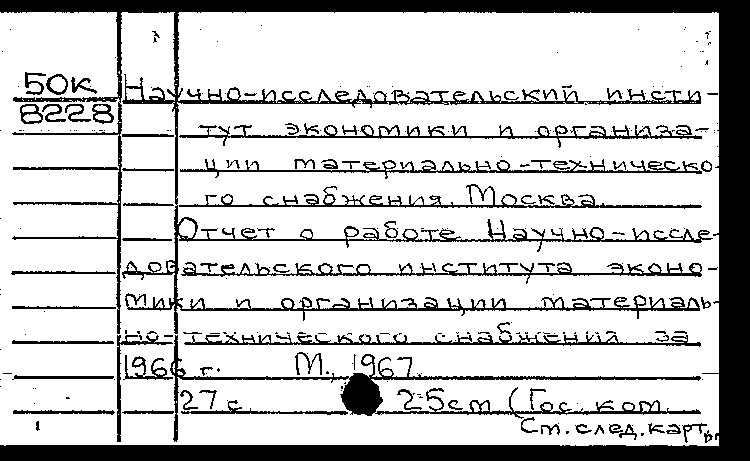 50К
8228
Научно-исследовательский инсти-
тут экономики и организа-
ции материально-техническо-
го снабжения. Москва.
Отчет о работе Научно-иссле-
довательского института эконо-
мики и организации материаль-
но-технического снабжения за
1966 г. М., 1967.
27 с. 25см (Гос. ком.
См. след. карт.